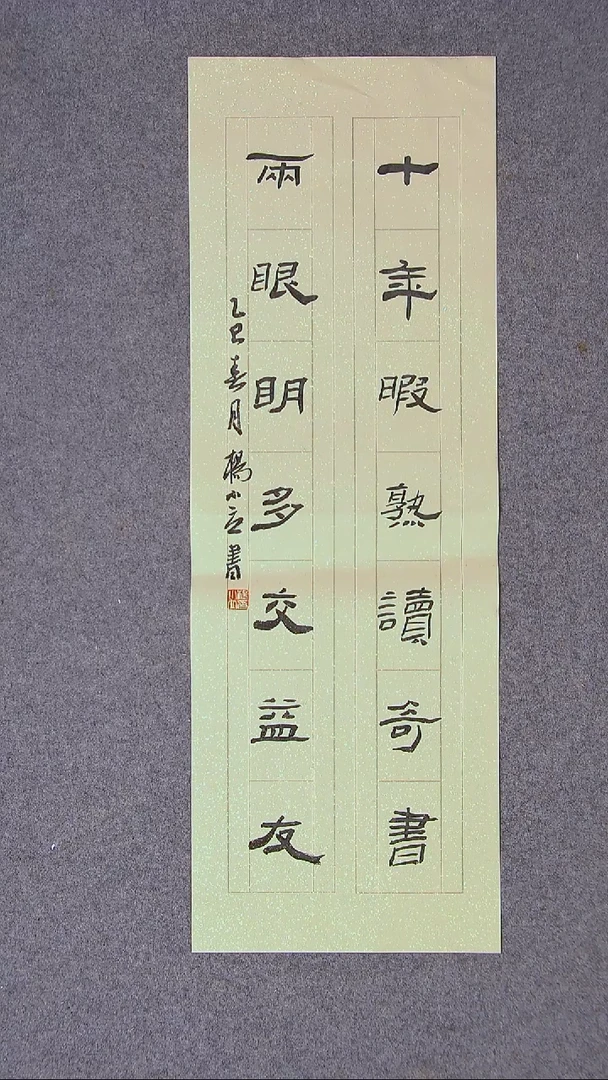 十年暇熟讀奇書
兩眼明多交益友
乙巳春月楊小立書